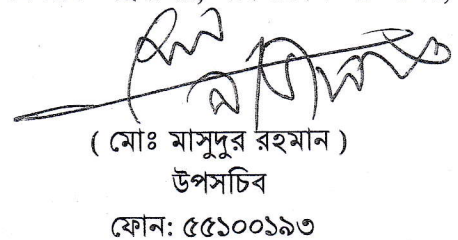 ( মোঃ মাসুদুর রহমান )
উপসচিব
ফোন: ৫৫১০০১৯৩